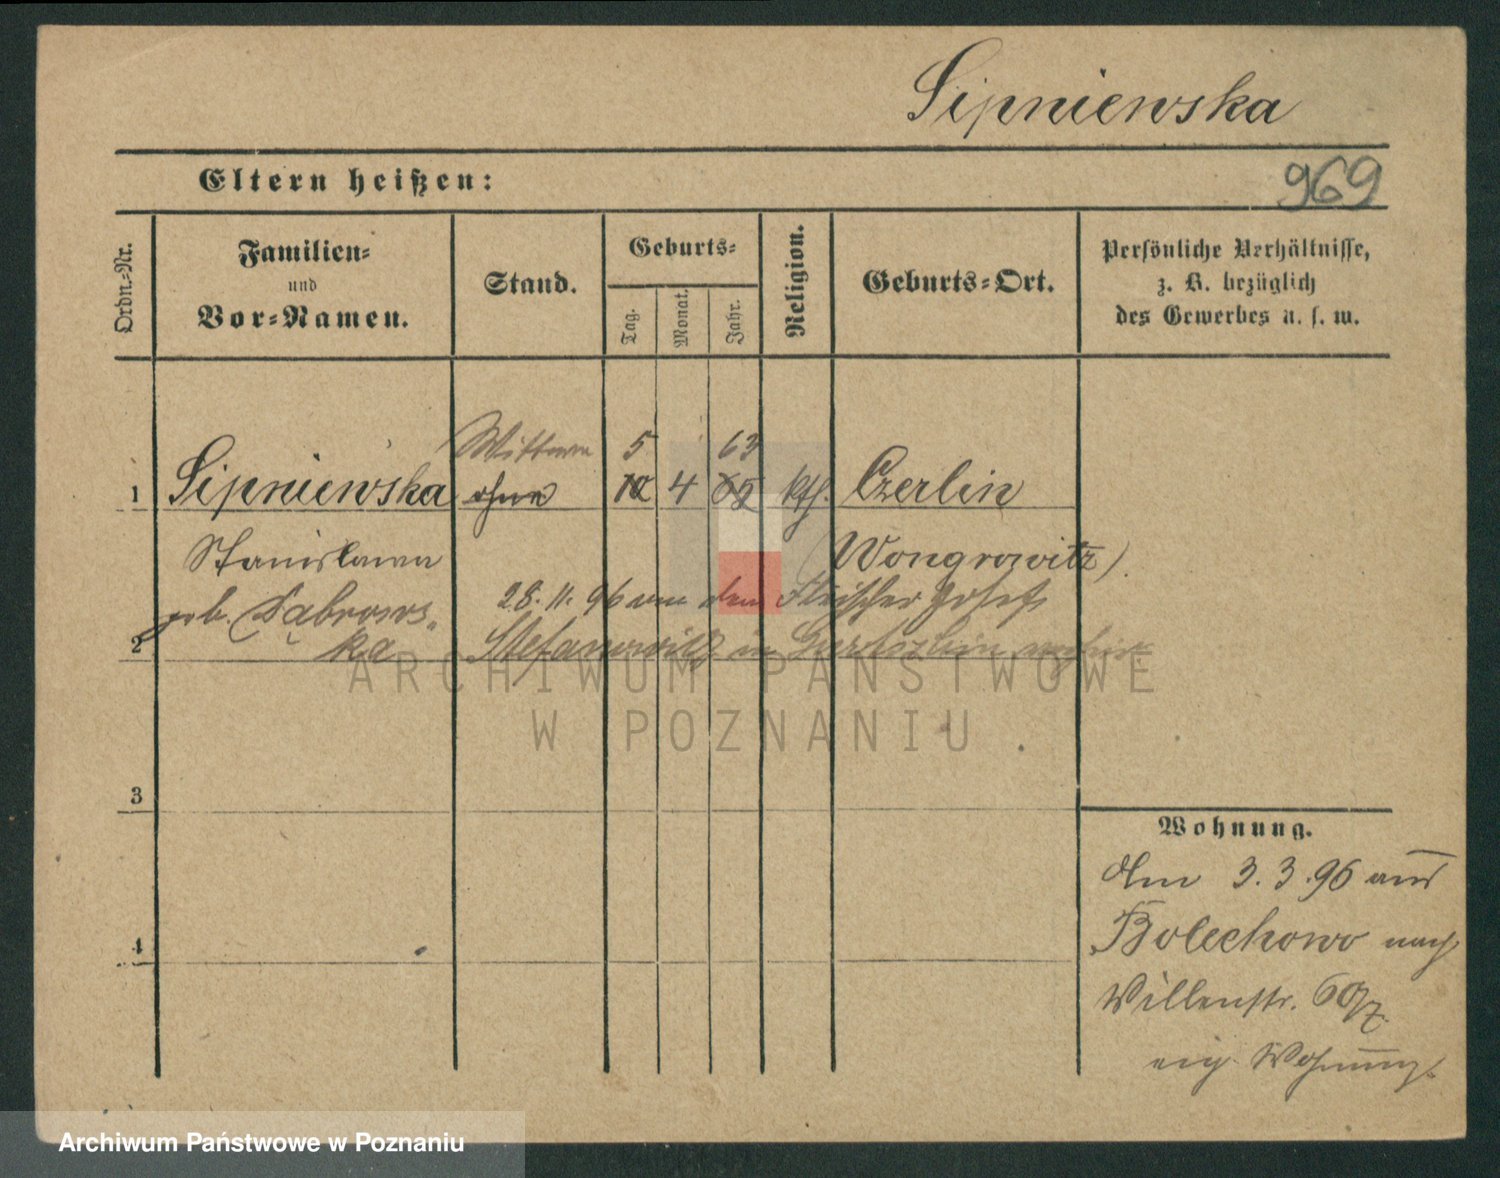 Sipniewska
Eltern heißen:
969
Ordn.-Nr.
Familien-
und
Vor-Namen.
Stand.
Geburts-
Tag.
Monat.
Jahr.
Religion.
Geburts-Ort.
Persönliche Verhältnisse,
z. B. bezüglich
des Gewerbes u. s. w.
Wittwe 5 63
1 Sipniewska ohne 4 65 kth. Czerlin
Stanislawa (Wongrowitz).
geb. Dąbrows-
28.11.96 von dem Fleischer Josef
2 ka Stefanowicz in
ARCHIWUM PAŃSTWOWE
W POZNANIU
3
Wohnung.
Am 3.3.96 aus
Bolechowo nach
4
Willenstr. 60/7
eig. Wohnung.
Archiwum Państwowe w Poznaniu